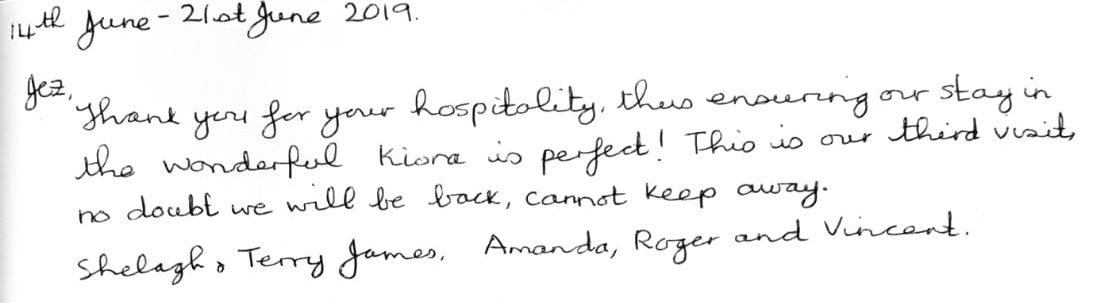 14th June - 21st June 2019.
Jez,
Thank you for your hospitality, thus ensuring our stay in
the wonderful Kiora is perfect! This is our third visit,
no doubt we will be back, cannot keep away.
Shelagh & Terry James, Amanda, Roger and Vincent.